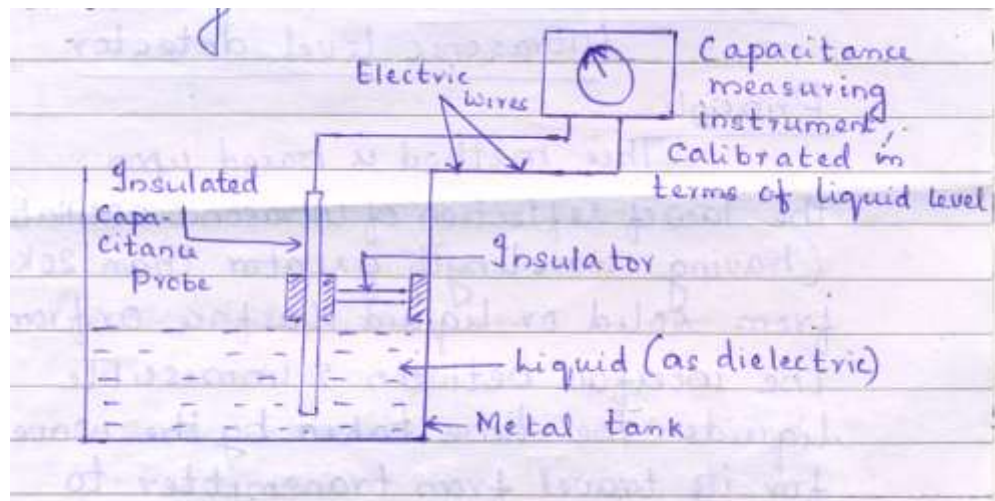 Electric
wires
Capacitance
measuring
instrument,
Calibrated in
terms of liquid level
Insulated
Capa-
citance
Probe
Insulator
Liquid (as dielectric)
Metal tank